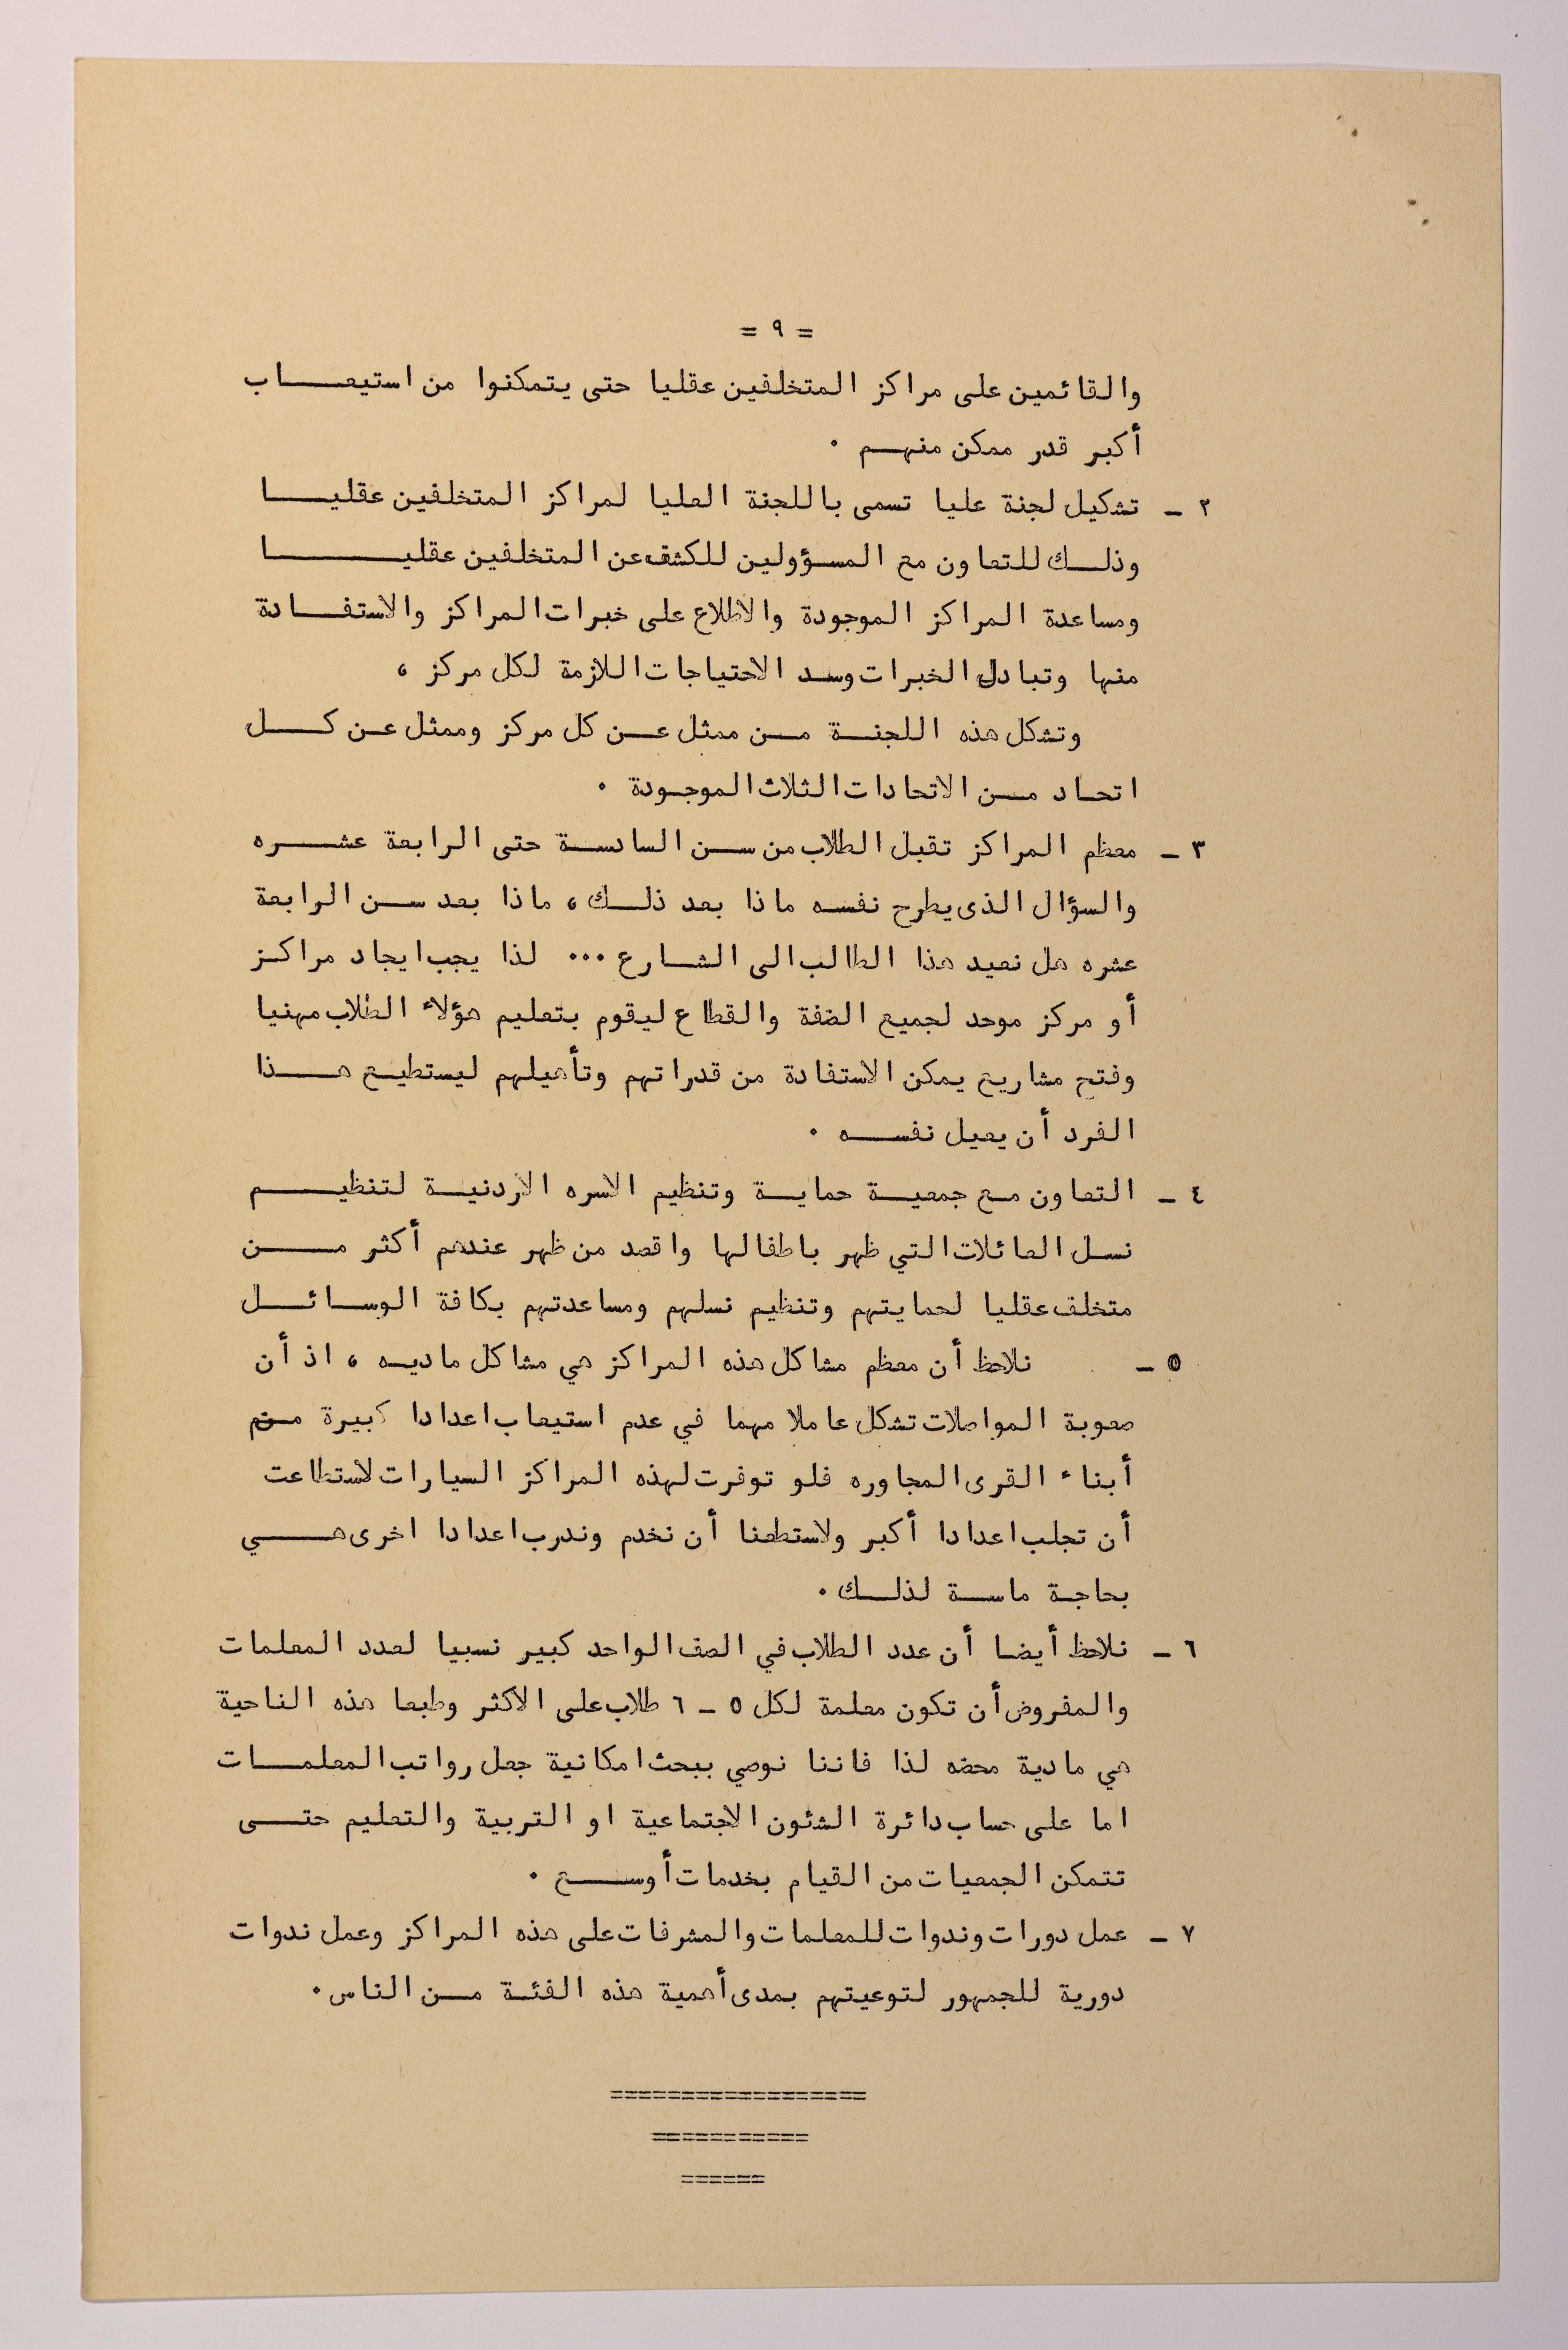 = ٩ =
والقائمين على مراكز المتخلفين عقليا حتى يتمكنوا من استيعاب
أكبر قدر ممكن منهم ٠
٢ ـ تشكيل لجنة عليا تسمى باللجنة العليا لمراكز المتخلفين عقليا
وذلك للتعاون مع المسؤولين للكشف عن المتخلفين عقليا
ومساعدة المراكز الموجودة والاطلاع على خبرات المراكز والاستفادة
منها وتبادل الخبرات وسد الاحتياجات اللازمة لكل مركز ،
وتشكل هذه اللجنة من ممثل عن كل مركز وممثل عن كل
اتحاد من الاتحادات الثلاث الموجودة ٠
٣ ـ معظم المراكز تقبل الطلاب من سن السادسة حتى الرابعة عشره
والسؤال الذى يطرح نفسه ماذا بعد ذلك ، ماذا بعد سن الرابعة
عشره هل نعيد هذا الطالب الى الشارع ٠٠٠ لذا يجب ايجاد مراكز
أو مركز موحد لجميع الضفة والقطاع ليقوم بتعليم هؤلاء الطلاب مهنيا
وفتح مشاريع يمكن الاستفادة من قدراتهم وتأهيلهم ليستطيع هذا
الفرد أن يعيل نفسه ٠
٤ ـ التعاون مع جمعية حماية وتنظيم الاسره الاردنية لتنظيم
نسل العائلات التي ظهر باطفالها واقصد من ظهر عندهم أكثر من
متخلف عقليا لحمايتهم وتنظيم نسلهم ومساعدتهم بكافة الوسائل
٥ ـ نلاحظ أن معظم مشاكل هذه المراكز هي مشاكل ماديه ، اذ أن
صعوبة المواصلات تشكل عاملا مهما في عدم استيعاب اعدادا كبيرة من
أبناء القرى المجاوره فلو توفرت لهذه المراكز السيارات لاستطاعت
أن تجلب اعدادا أكبر ولاستطعنا أن نخدم وندرب اعدادا اخرى هي
بحاجة ماسة لذلك ٠
٦ ـ نلاحظ أيضا أن عدد الطلاب في الصف الواحد كبير نسبيا لعدد المعلمات
والمفروض أن تكون معلمة لكل ٥ ـ ٦ طلاب على الاكثر وطبعا هذه الناحية
هي مادية محضه لذا فاننا نوصي ببحث امكانية جعل رواتب المعلمات
اما على حساب دائرة الشئون الاجتماعية او التربية والتعليم حتى
تتمكن الجمعيات من القيام بخدمات أوسع ٠
٧ ـ عمل دورات وندوات للمعلمات والمشرفات على هذه المراكز وعمل ندوات
دورية للجمهور لتوعيتهم بمدى أهمية هذه الفئة من الناس ٠
==================
===========
======